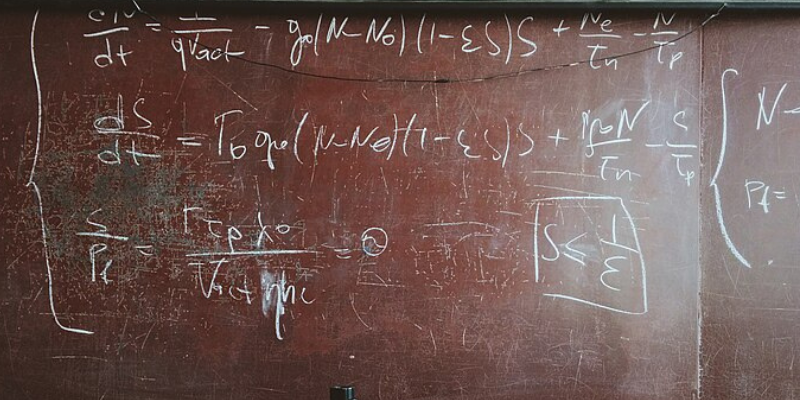 dN/dt = I/qVact - g0(N-N0)(1-εS)S + Ne/τn - N/τp
dS/dt = Γ0 g0(N-N0)(1-εS)S + Γβ0N/τn - S/τp
S/Pf = Γτpλ0/Vact ηhc =
S ≤ 1/ε
N
Pf =